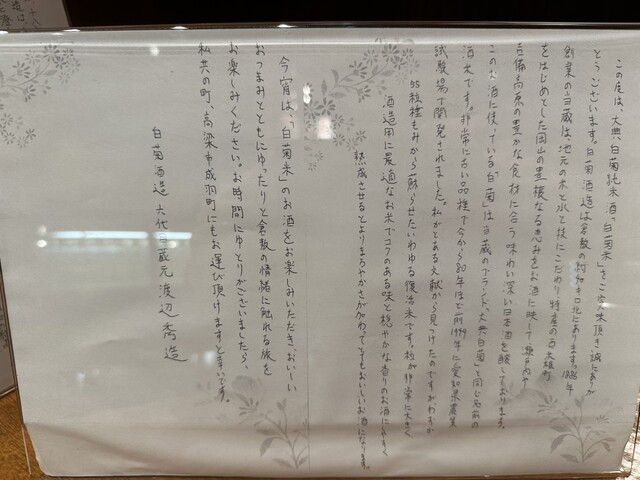 この度は、大典白菊純米酒「白菊米」をご賞味頂き誠にありが
とうございます。白菊酒造は倉敷の約40キロ北にあります。1886年
創業の当蔵は地元の米と水と技にこだわり特産の百本雄町
をはじめとした岡山の豊穣なる恵みをお酒に映して瀬戸内や
吉備高原の豊かな食材に合う味わい深い日本酒を醸しております。
このお酒に使っている「白菊」は当蔵のブランド「大典白菊」と同じ名前の
酒米です。非常に古い品種で今から80年ほど前1939年に愛知県農業
試験場で開発されました。私がとある文献から見つけたのですがわずか
55粒種もみから蘇らせたいわゆる復活米です。粒が非常に大きく
酒造用に最適なお米でコクのある味と穏やかな香りのお酒に
熟成させるとよりまろやかさが加わってとてもおいしいお酒になります。
今宵は、「白菊米」のお酒をお楽しみいただき、おいしい
おつまみとともにゆったりと倉敷の情緒に触れる旅を
お楽しみください。お時間にゆとりがございましたら、
私共の町、高梁市成羽町にもお運び頂けますと幸いです。
白菊酒造 六代目蔵元 渡辺秀造